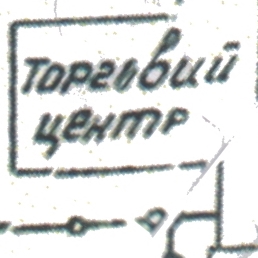 Торговий
центр